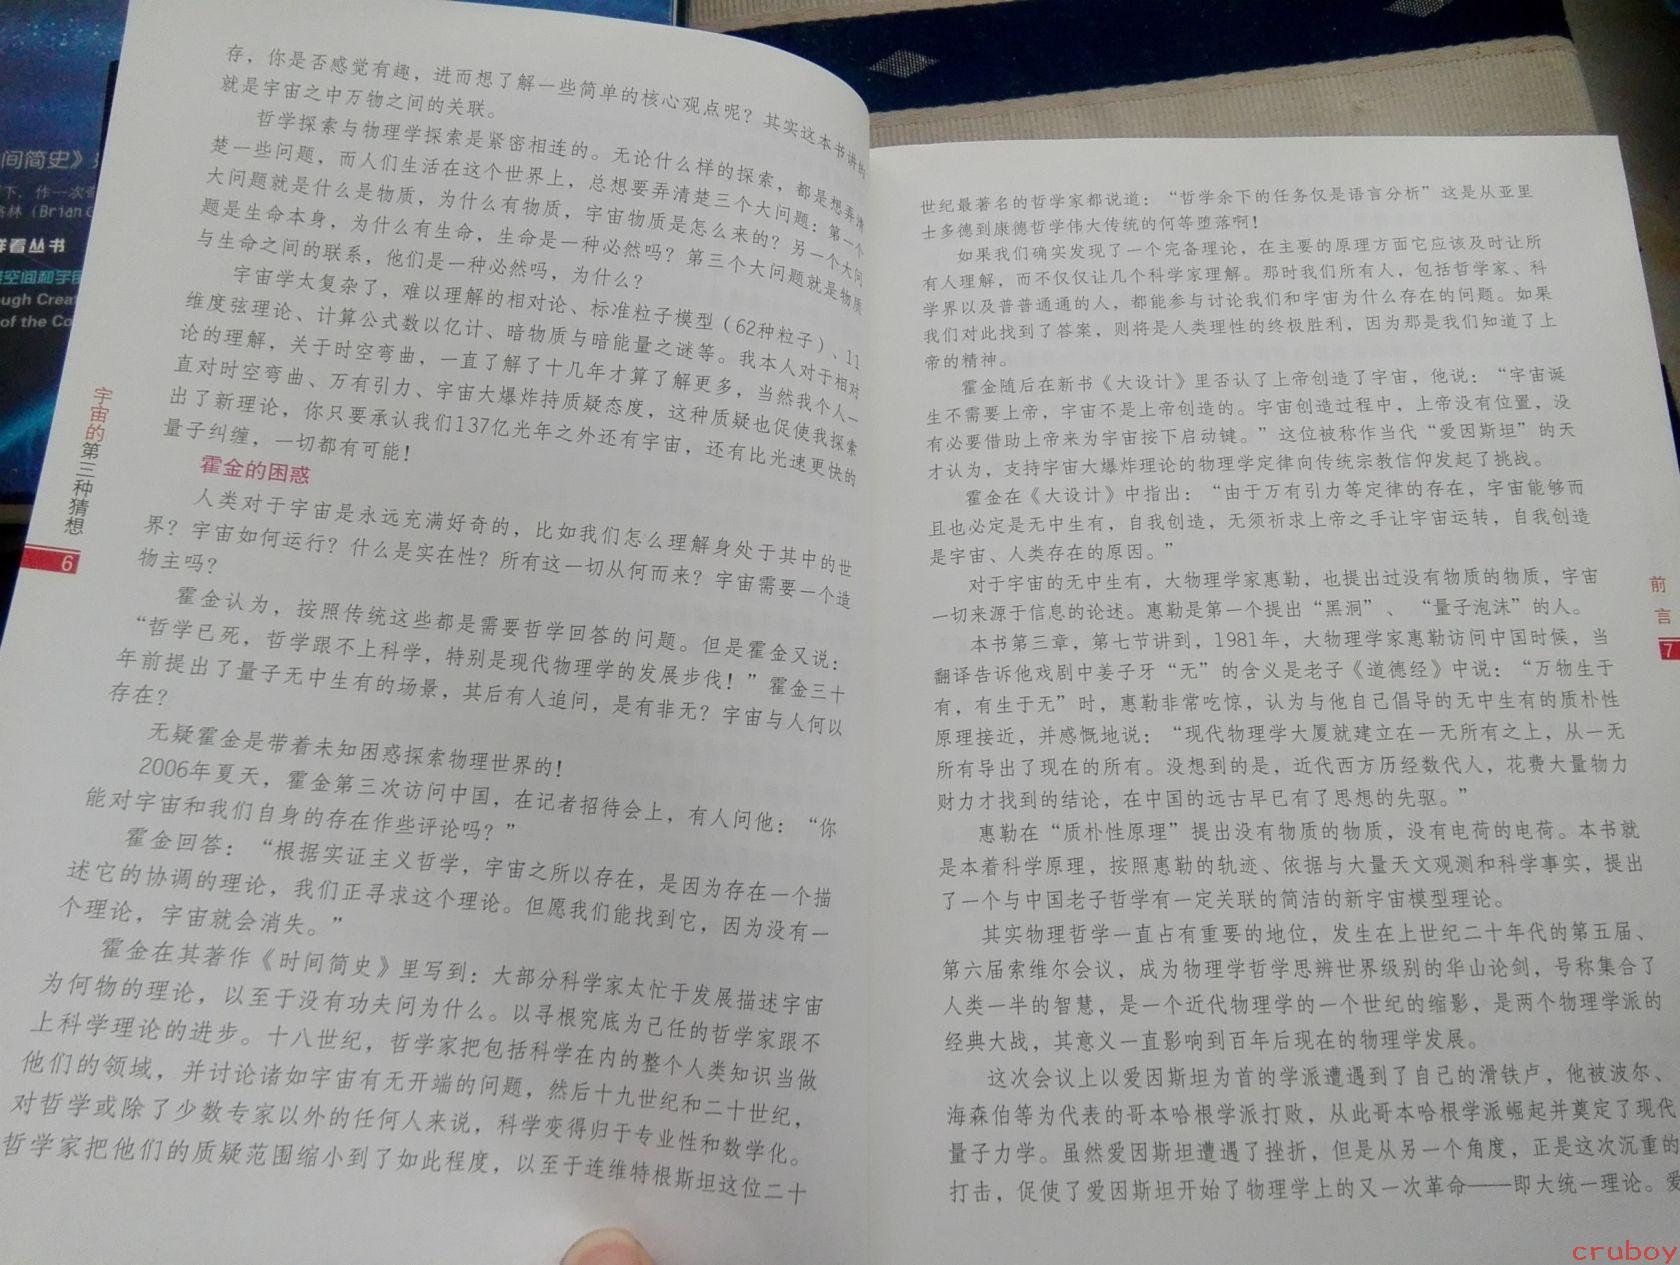 间简史》
下，作一次奇
格林（Brian G
样看丛书
空间和宇宙
ough Creat
of the Co
存，你是否感觉有趣，进而想了解一些简单的核心观点呢？其实这本书讲的
就是宇宙之中万物之间的关联。
哲学探索与物理学探索是紧密相连的。无论什么样的探索，都是想弄清
楚一些问题，而人们生活在这个世界上，总想要弄清楚三个大问题：第一个
大问题就是什么是物质，为什么有物质，宇宙物质是怎么来的？另一个大问
题是生命本身，为什么有生命，生命是一种必然吗？第三个大问题就是物质
与生命之间的联系，他们是一种必然吗，为什么？
宇宙学太复杂了，难以理解的相对论、标准粒子模型（62种粒子）、11
维度弦理论、计算公式数以亿计、暗物质与暗能量之谜等。我本人对于相对
论的理解，关于时空弯曲，一直了解了十几年才算了解更多，当然我个人一
直对时空弯曲、万有引力、宇宙大爆炸持质疑态度，这种质疑也促使我探索
出了新理论，你只要承认我们137亿光年之外还有宇宙，还有比光速更快的
量子纠缠，一切都有可能！
霍金的困惑
人类对于宇宙是永远充满好奇的，比如我们怎么理解身处于其中的世
界？宇宙如何运行？什么是实在性？所有这一切从何而来？宇宙需要一个造
物主吗？
霍金认为，按照传统这些都是需要哲学回答的问题。但是霍金又说：
“哲学已死，哲学跟不上科学，特别是现代物理学的发展步伐！”霍金三十
年前提出了量子无中生有的场景，其后有人追问，是有非无？宇宙与人何以
存在？
无疑霍金是带着未知困惑探索物理世界的！
2006年夏天，霍金第三次访问中国，在记者招待会上，有人问他：“你
能对宇宙和我们自身的存在作些评论吗？”
霍金回答：“根据实证主义哲学，宇宙之所以存在，是因为存在一个描
述它的协调的理论，我们正寻求这个理论。但愿我们能找到它，因为没有一
个理论，宇宙就会消失。”
霍金在其著作《时间简史》里写到：大部分科学家太忙于发展描述宇宙
为何物的理论，以至于没有功夫问为什么。以寻根究底为己任的哲学家跟不
上科学理论的进步。十八世纪，哲学家把包括科学在内的整个人类知识当做
他们的领域，并讨论诸如宇宙有无开端的问题，然后十九世纪和二十世纪，
对哲学或除了少数专家以外的任何人来说，科学变得归于专业性和数学化。
哲学家把他们的质疑范围缩小到了如此程度，以至于连维特根斯坦这位二十
宇宙的第三种猜想
6
世纪最著名的哲学家都说道：“哲学余下的任务仅是语言分析”这是从亚里
士多德到康德哲学伟大传统的何等堕落啊！
如果我们确实发现了一个完备理论，在主要的原理方面它应该及时让所
有人理解，而不仅仅让几个科学家理解。那时我们所有人，包括哲学家、科
学界以及普普通通的人，都能参与讨论我们和宇宙为什么存在的问题。如果
我们对此找到了答案，则将是人类理性的终极胜利，因为那是我们知道了上
帝的精神。
霍金随后在新书《大设计》里否认了上帝创造了宇宙，他说：“宇宙诞
生不需要上帝，宇宙不是上帝创造的。宇宙创造过程中，上帝没有位置，没
有必要借助上帝来为宇宙按下启动键。”这位被称作当代“爱因斯坦”的天
才认为，支持宇宙大爆炸理论的物理学定律向传统宗教信仰发起了挑战。
霍金在《大设计》中指出：“由于万有引力等定律的存在，宇宙能够而
且也必定是无中生有，自我创造，无须祈求上帝之手让宇宙运转，自我创造
是宇宙、人类存在的原因。”
对于宇宙的无中生有，大物理学家惠勒，也提出过没有物质的物质，宇宙
一切来源于信息的论述。惠勒是第一个提出“黑洞”、“量子泡沫”的人。
本书第三章，第七节讲到，1981年，大物理学家惠勒访问中国时候，当
翻译告诉他戏剧中姜子牙“无”的含义是老子《道德经》中说：“万物生于
有，有生于无”时，惠勒非常吃惊，认为与他自己倡导的无中生有的质朴性
原理接近，并感慨地说：“现代物理学大厦就建立在一无所有之上，从一无
所有导出了现在的所有。没想到的是，近代西方历经数代人，花费大量物力
财力才找到的结论，在中国的远古早已有了思想的先驱。”
惠勒在“质朴性原理”提出没有物质的物质，没有电荷的电荷。本书就
是本着科学原理，按照惠勒的轨迹、依据与大量天文观测和科学事实，提出
了一个与中国老子哲学有一定关联的简洁的新宇宙模型理论。
其实物理哲学一直占有重要的地位，发生在上世纪二十年代的第五届、
第六届索维尔会议，成为物理学哲学思辨世界级别的华山论剑，号称集合了
人类一半的智慧，是一个近代物理学的一个世纪的缩影，是两个物理学派的
经典大战，其意义一直影响到百年后现在的物理学发展。
这次会议上以爱因斯坦为首的学派遭遇到了自己的滑铁卢，他被波尔、
海森伯等为代表的哥本哈根学派打败，从此哥本哈根学派崛起并奠定了现代
量子力学。虽然爱因斯坦遭遇了挫折，但是从另一个角度，正是这次沉重的
打击，促使了爱因斯坦开始了物理学上的又一次革命——即大统一理论。爱
前言
7
cruboy